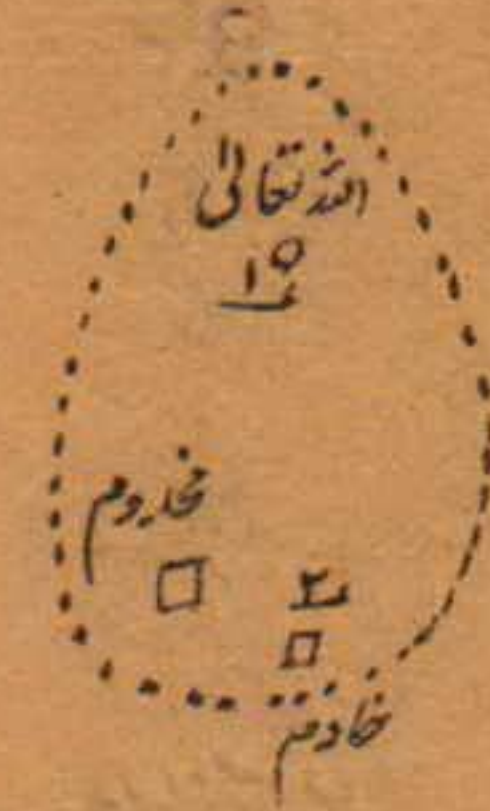 اللہ تعالیٰ
۱
مخدوم
۲
خادم